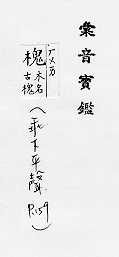 彙音寶鑑
槐
木名
古槐
(乖下平聲 P.159)